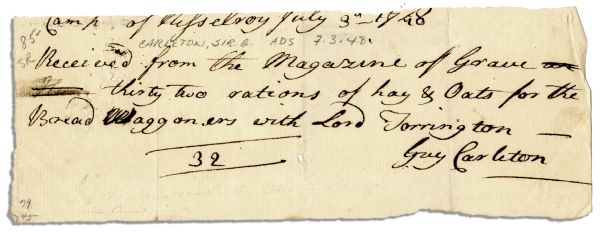 Camp, of Nisselroy July 3d 1748
CARLETON, SIR G. ADS 7.3.48.
Received from the Magazine of Grave
thirty two rations of hay & Oats for the
Bread Waggoners with Lord Torrington
32
Guy Carleton